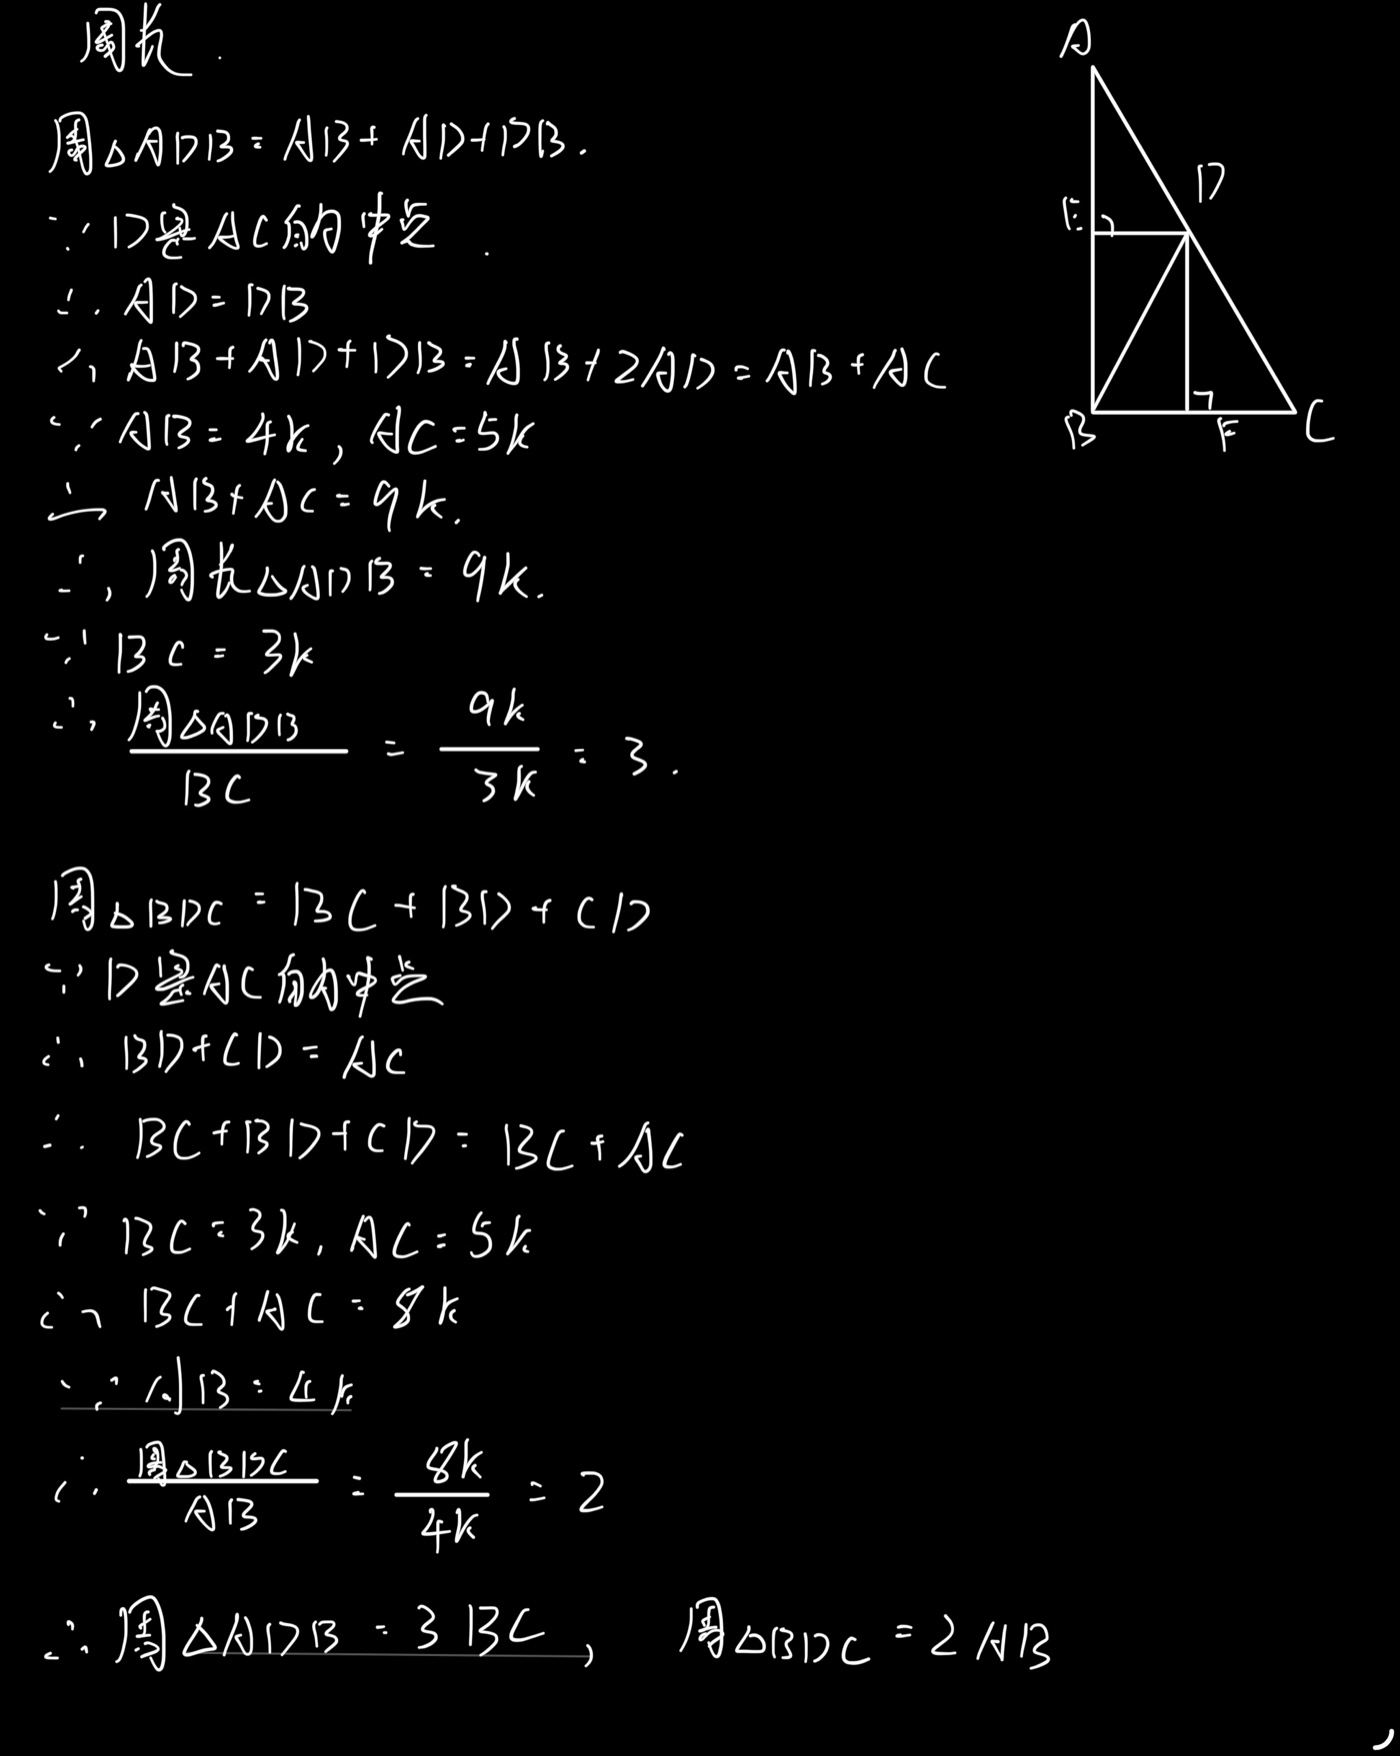 周长.
周△ADB=AB+AD+DB.
∵D是AC的中点.
∴AD=DB
∴AB+AD+DB=AB+2AD=AB+AC
∵AB=4k,AC=5k
∴AB+AC=9k.
∴周长△ADB=9k.
∵BC=3k
∴周△ADB/BC=9k/3k=3.
周△BDC=BC+BD+CD
∵D是AC的中点
∴BD+CD=AC
∴BC+BD+CD=BC+AC
∵BC=3k,AC=5k
∴BC+AC=8k
∵AB=4k
∴周△BDC/AB=8k/4k=2
∴周△ADB=3BC,周△BDC=2AB
A
D
E
B
F
C